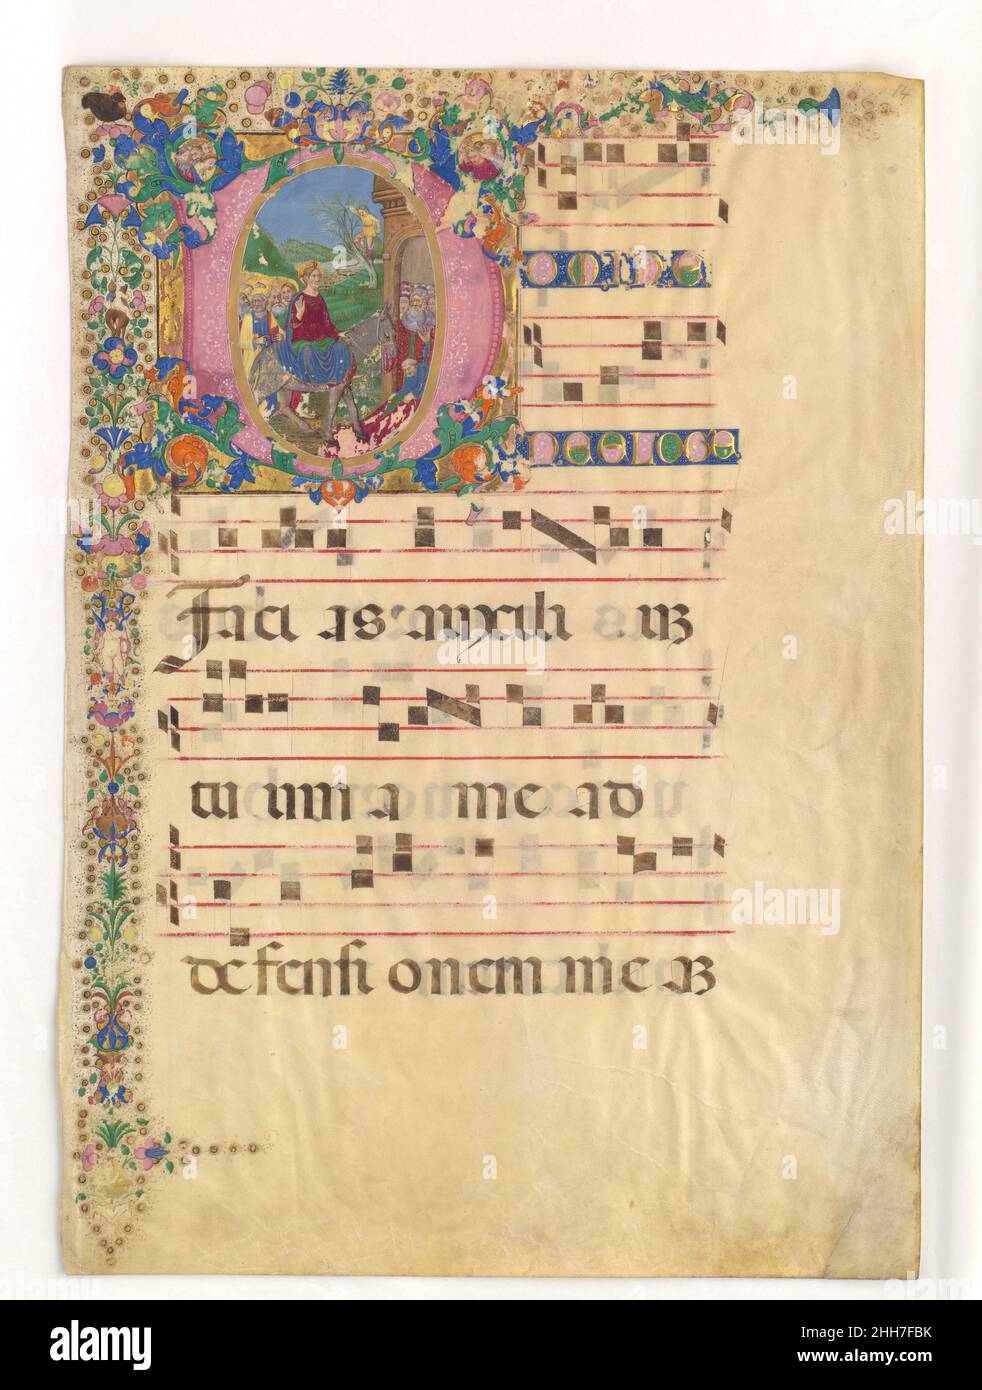 14
Domine
ne
Faci as auxili uʒ
tu um a me ad
defensi onem me aʒ
alamy
alamy
Image ID: 2HH7FBK
www.alamy.com